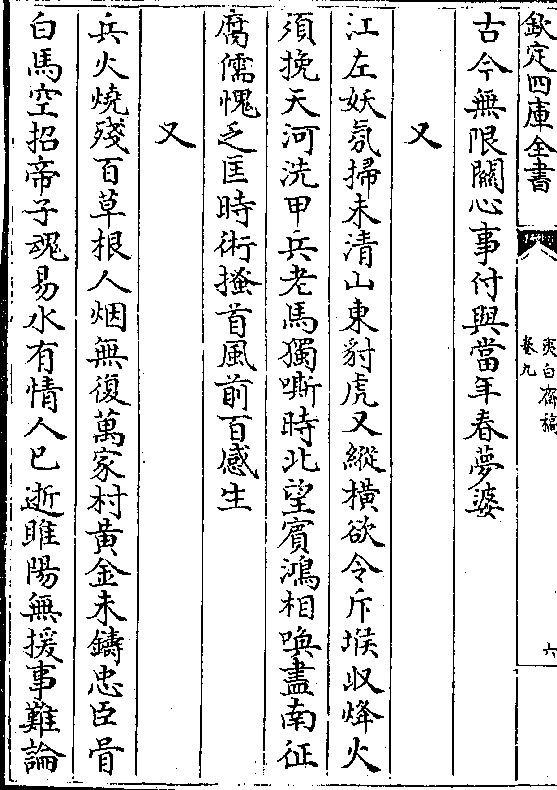 欽定四庫全書
夷白齋稿
卷九
六
古今無限關心事付與當年春夢婆
又
江左妖氛掃未清山東豺虎又縱橫欲令斥堠収烽火
須挽天河洗甲兵老馬獨嘶時北望賓鴻相喚盡南征
腐儒愧乏匡時術搔首風前百感生
又
兵火燒殘百草根人烟無復萬家村黄金未鑄忠臣骨
白馬空招帝子魂易水有情人已逝睢陽無援事難論